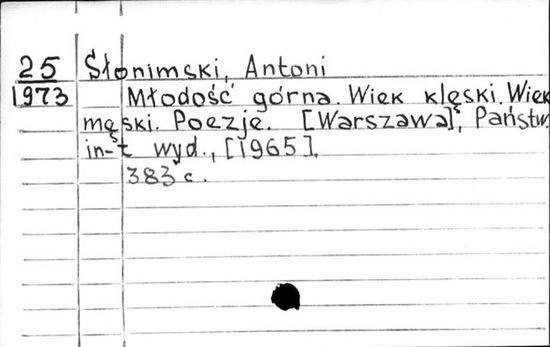 25 Słonimski, Antoni
1973 Młodość górna. Wiek klęski. Wiek
męski. Poezje. [Warszawa], Państw
in-t wyd., [1965].
383 c.